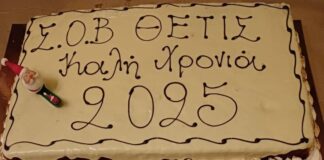 Σ.Ο.Β ΘΕΤΙΣ
Καλή Χρονιά
2025